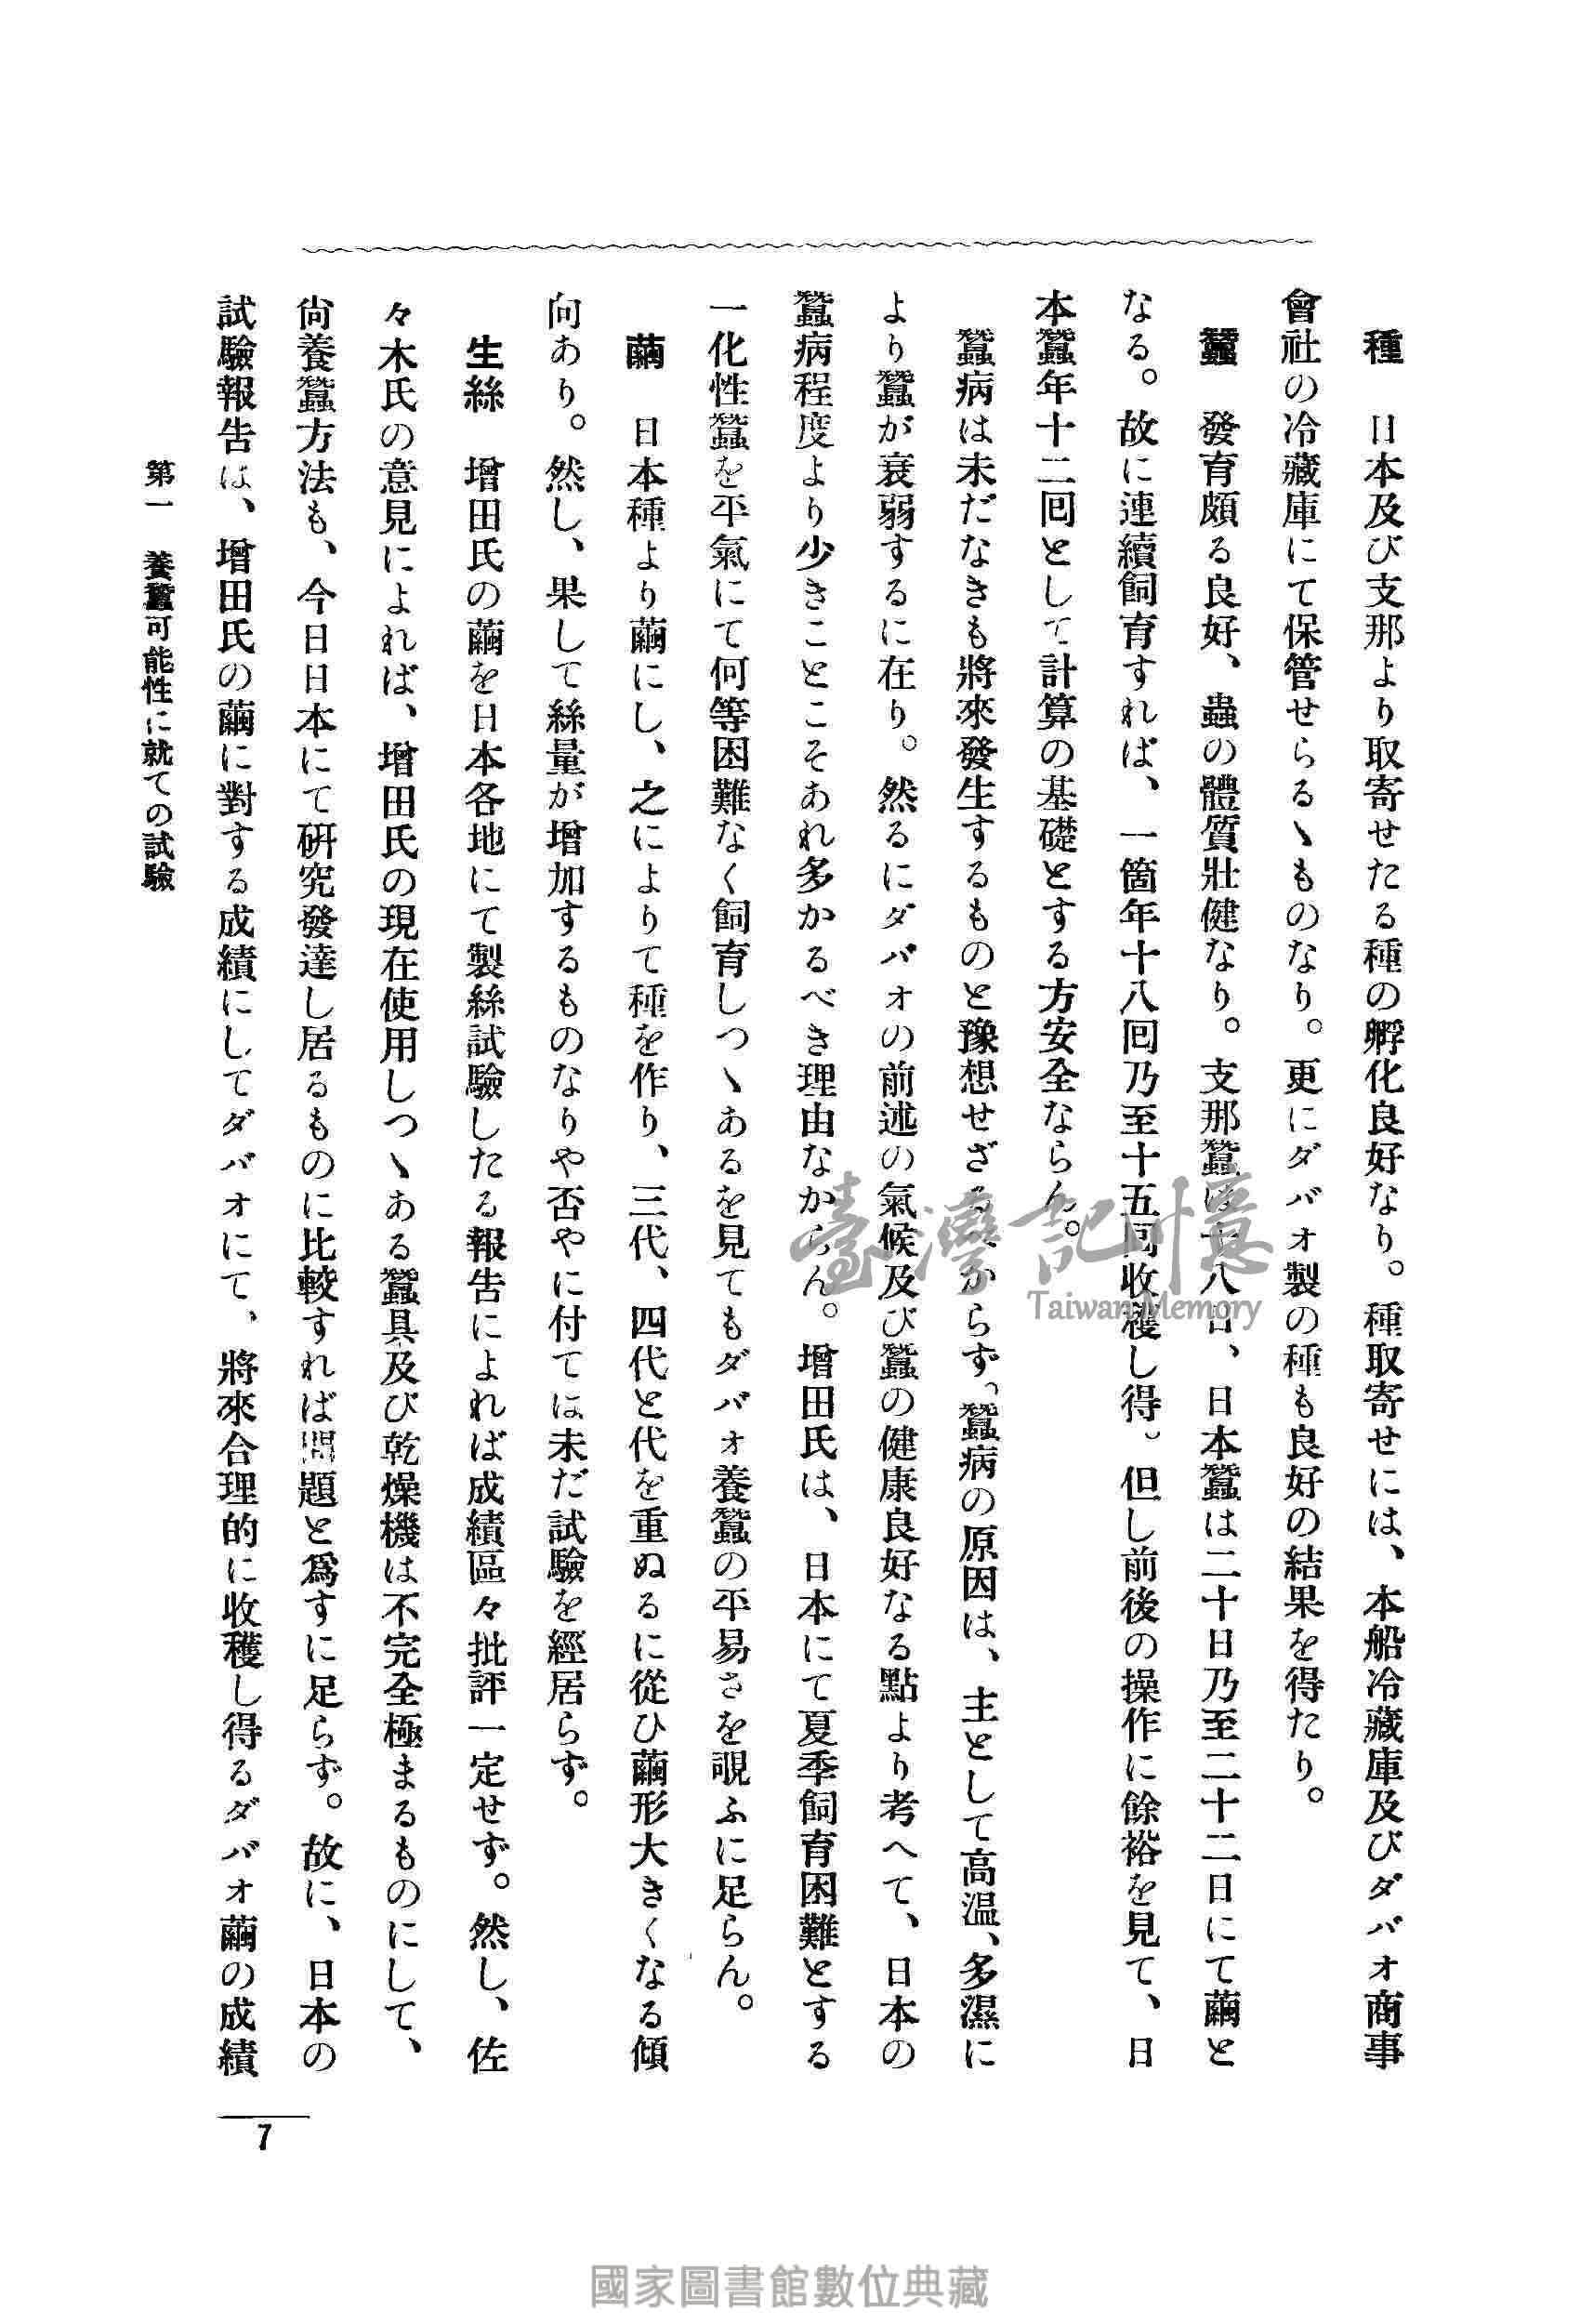 種　日本及び支那より取寄せたる種の孵化良好なり。種取寄せには、本船冷藏庫及びダバオ商事
會社の冷藏庫にて保管せらるゝものなり。更にダバオ製の種も良好の結果を得たり。
蠶　發育頗る良好、蟲の體質壯健なり。支那蠶は十八日、日本蠶は二十日乃至二十二日にて繭と
なる。故に連續飼育すれば、一箇年十八回乃至十五回收穫し得。但し前後の操作に餘裕を見て、日
本蠶年十二回として計算の基礎とする方安全ならん。
蠶病は未だなきも將來發生するものと豫想せざるべからず。蠶病の原因は、主として高温、多濕に
より蠶が衰弱するに在り。然るにダバオの前述の氣候及び蠶の健康良好なる點より考へて、日本の
蠶病程度より少きことこそあれ多かるべき理由なからん。增田氏は、日本にて夏季飼育困難とする
一化性蠶を平氣にて何等困難なく飼育しつゝあるを見てもダバオ養蠶の平易さを覗ふに足らん。
繭　日本種より繭にし、之によりて種を作り、三代、四代と代を重ぬるに從ひ繭形大きくなる傾
向あり。然し、果して絲量が增加するものなりや否やに付ては未だ試驗を經居らず。
生絲　增田氏の繭を日本各地にて製絲試驗したる報告によれば成績區々批評一定せず。然し、佐
々木氏の意見によれば、增田氏の現在使用しつゝある蠶具及び乾燥機は不完全極まるものにして、
尙養蠶方法も、今日日本にて硏究發達し居るものに比較すれば問題と爲すに足らず。故に、日本の
試驗報告は、增田氏の繭に對する成績にしてダバオにて、將來合理的に收穫し得るダバオ繭の成績
第一　養蠶可能性に就ての試驗
7
臺灣記憶
Taiwan Memory
國家圖書館數位典藏